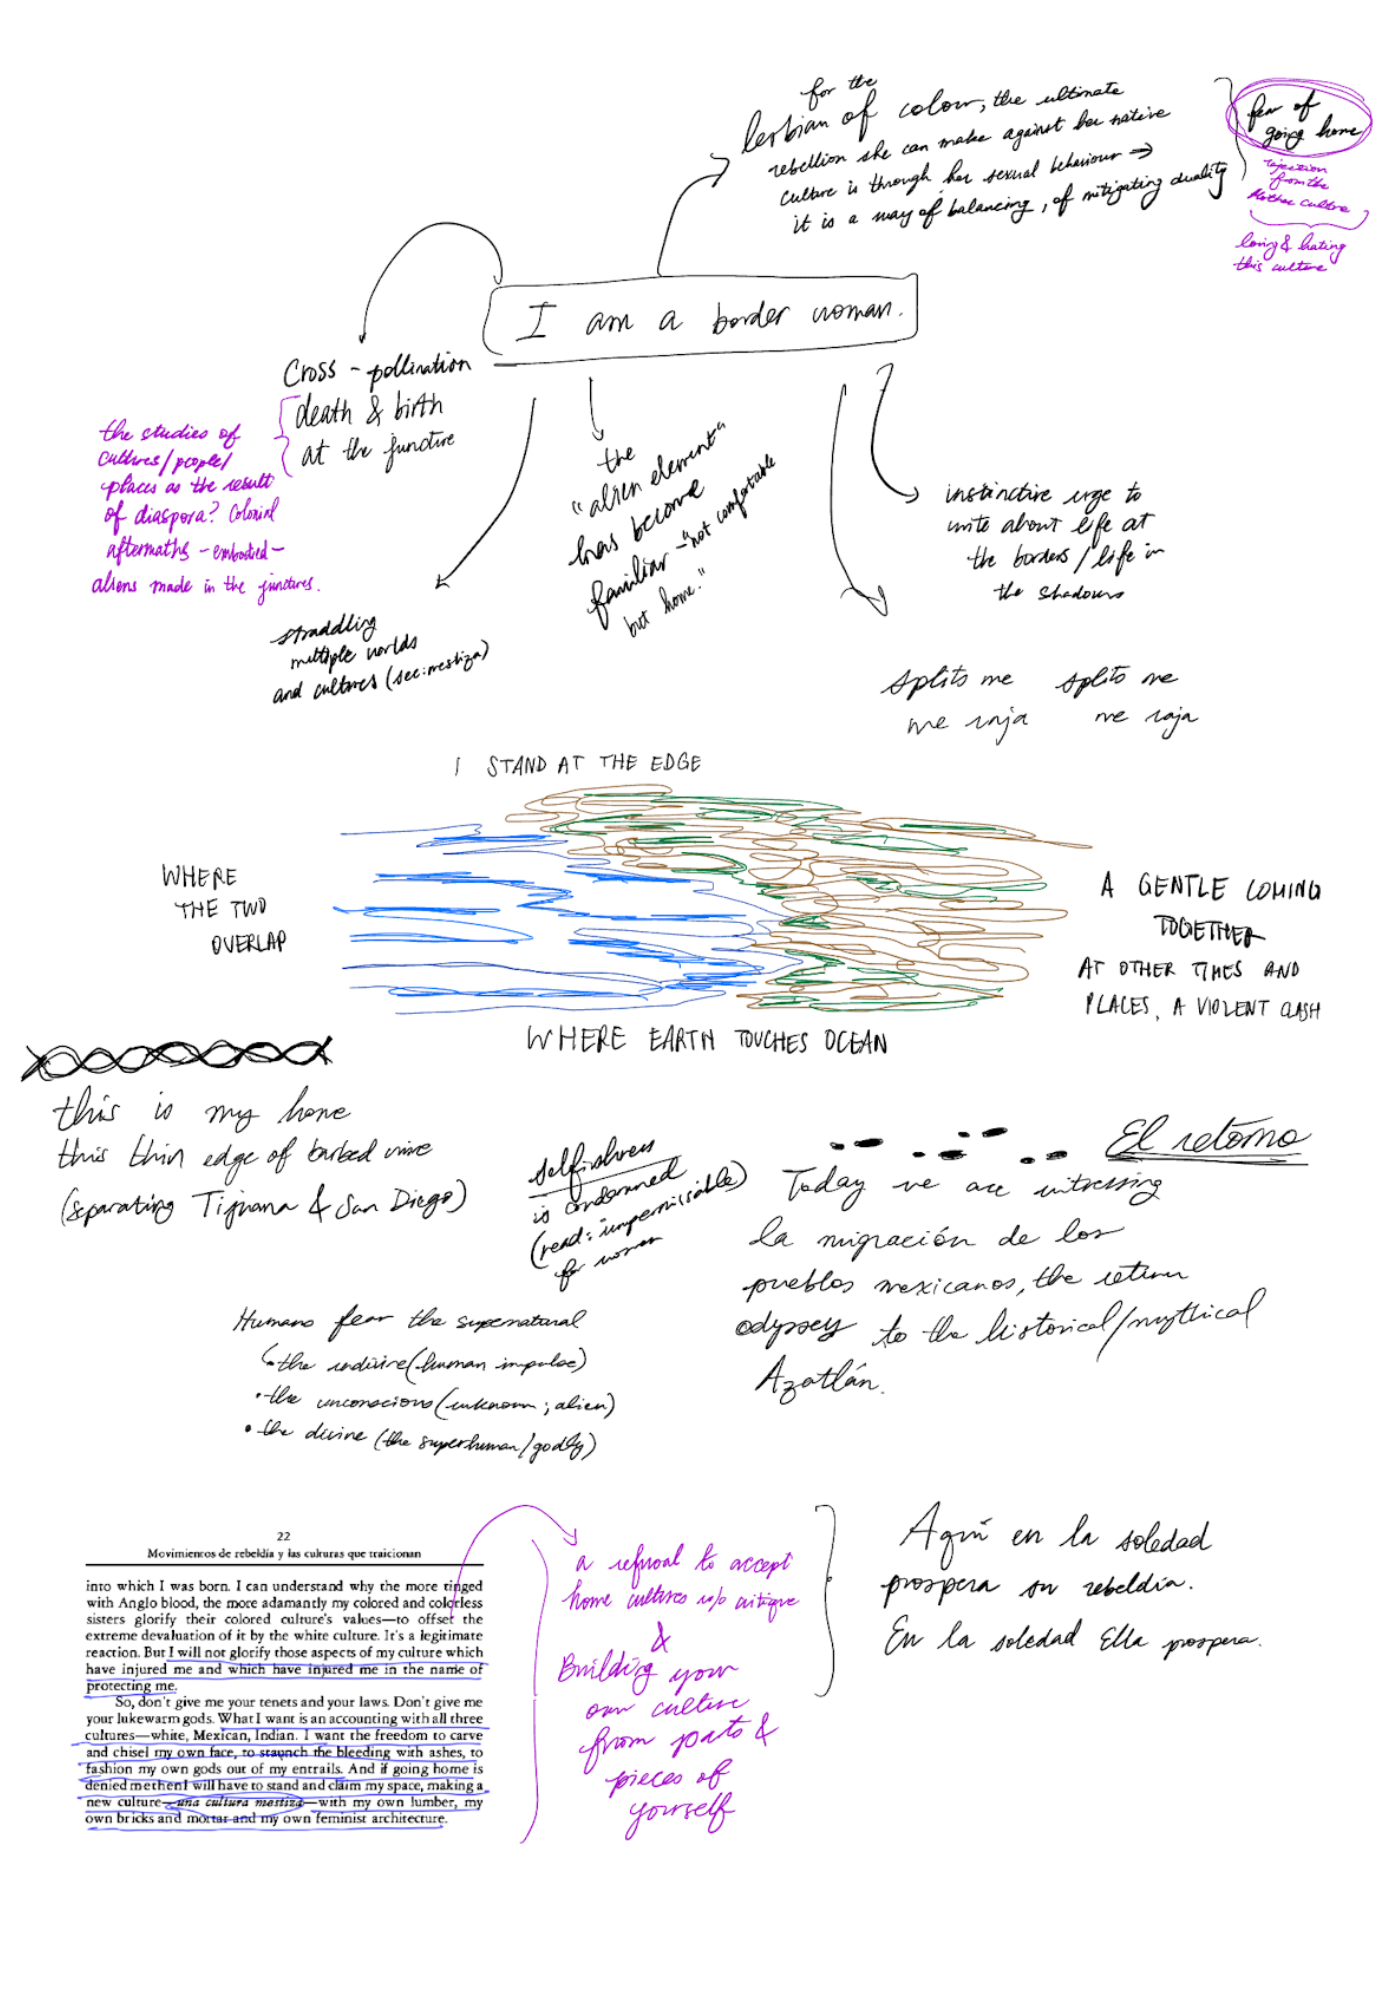 for the
lesbian of colour, the ultimate
rebellion she can make against her native
culture is through her sexual behaviour →
it is a way of balancing, of mitigating duality
fear of
going home
rejection
from the
Mother culture
loving & hating
this culture
I am a border woman.
Cross-pollination
death & birth
at the juncture
the studies of
cultures/people/
places as the result
of diaspora? Colonial
aftermaths - embodied -
aliens made in the junctures.
straddling
multiple worlds
and cultures (see: mestiza)
the
"alien element"
has become
familiar - "not comfortable
but home."
instinctive urge to
write about life at
the borders/life in
the shadows
splits me splits me
me raja me raja
I STAND AT THE EDGE
WHERE
THE TWO
OVERLAP
A GENTLE COMING
TOGETHER
AT OTHER TIMES AND
PLACES, A VIOLENT CLASH
WHERE EARTH TOUCHES OCEAN
this is my home
this thin edge of barbed wire
(separating Tijuana & San Diego)
selfishness
is condemned
(read: "impermissible)
for women
El retorno
Today we are witnessing
la migración de los
pueblos mexicanos, the return
odyssey to the historical/mythical
Azatlán.
Humans fear the supernatural
the undivine (human impulse)
• the unconscious (unknown; alien)
• the divine (the superhuman/godly)
22
Movimientos de rebeldía y las culturas que traicionan
into which I was born. I can understand why the more tinged
with Anglo blood, the more adamantly my colored and colorless
sisters glorify their colored culture's values—to offset the
extreme devaluation of it by the white culture. It's a legitimate
reaction. But I will not glorify those aspects of my culture which
have injured me and which have injured me in the name of
protecting me.
So, don't give me your tenets and your laws. Don't give me
your lukewarm gods. What I want is an accounting with all three
cultures—white, Mexican, Indian. I want the freedom to carve
and chisel my own face, to staunch the bleeding with ashes, to
fashion my own gods out of my entrails. And if going home is
denied me then I will have to stand and claim my space, making a
new culture—una cultura mestiza—with my own lumber, my
own bricks and mortar and my own feminist architecture.
a refusal to accept
home cultures w/o critique
&
Building your
own culture
from parts &
pieces of
yourself
Aquí en la soledad
prospera su rebeldía.
En la soledad Ella prospera.